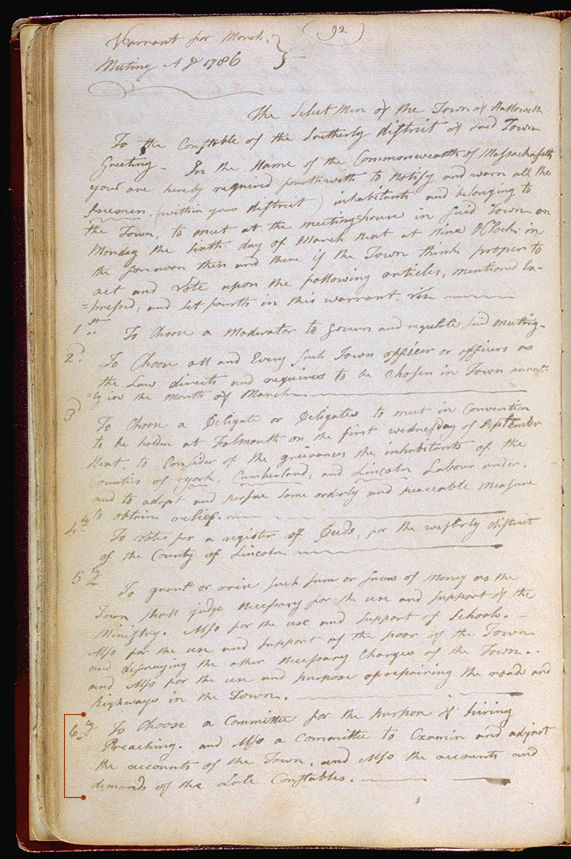 (92)
Warrant for March
Meeting A D 1786
The Select Men of the Town of Hallowell
To the Constable of the Southerly district of said Town
Greeting - In the Name of the Commonwealth of Massachusetts
you are hereby required fourthwith to Notify and warn all the
(within your district) inhabitants and belonging to
the Town, to meet at the meetinghouse in said Town on
Monday the Sixth day of March Next at Nine OClock in
the forenoon then and there if the Town think proper to
act and Vote upon the following articles, mentioned Ex-
=pressed, and set fourth in this warrant. Viz
1st To Choose a Moderator to govern and regulate said meeting-
2d To Choose all and Every such Town officer or officers as
the Law directs and requires to be Chosen in Town annual-
ly in the Month of March.
3 To Choose a Deligate or Deligates to meet in Convention
to be holden at Falmouth on the first wednesday of September
Next, to Consider of the grievances the inhabitants of the
ounties of york, Cumberland, and Lincoln Labour under.
and to adopt and persue some orderly and peaceable Measure
to obtain relief.
4 To Vote for a register of Deeds, for the westerly district
of the County of Lincoln
5 To grant or raise such sum or sums of Money as the
Town shall judge Necessary for the use and support of the
Ministry. Also for the use and support of Schools.
Also for the use and support of the poor of the Town
and defraying the other Necessary Charges of the Town.
and Also for the use and purpose of repairing the roads and
highways in the Town.
6 To Choose a Committee for the purpose of hiring
Preaching. and Also a Committee to Examin and adjust
the accounts of the Town. and Also the accounts and
demands of the Late Constables.